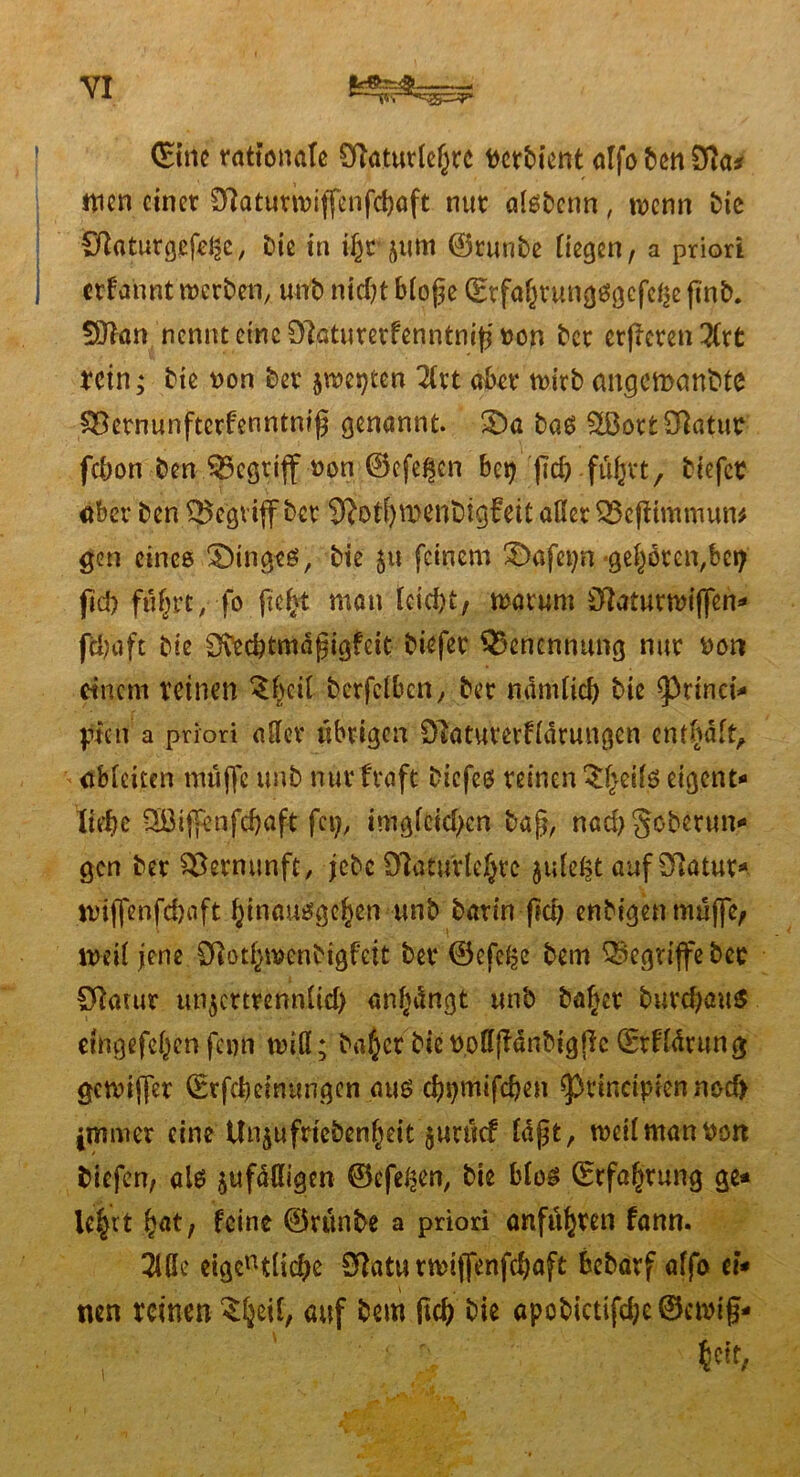 VI
Eine rationale Naturlehre verdient also den Na-
men einer Naturwissenschaft nur alsdenn, wenn die
Naturgesetze, die in ihr zum Grunde liegen, a priori
erkannt werden, und nicht bloße Erfahrungsgesetze sind.
Man nennt eine Naturerkenntniß von der ersteren Art
rein; die von der zweyten Art aber wird angewandte
Vernunfterkenntniß genannt. Da das Wort Natur
schon den Begriff von Gesetzen bey sich führt, dieser
aber den Begriff der Nothwendigkeit aller Bestimmun-
gen eines Dinges, die zu seinem Daseyn gehören, bey
sich führt, so sieht man leicht, warum Naturwissen-
schaft die Rechtmäßigkeit dieser Benennung nur von
einem reinen Theil derselben, der nämlich die Princi-
pien a priori aller übrigen Naturerklärungen enthält,
ableiten müsse und nur kraft dieses reinen Theils eigent-
liche Wissenschaft sey, imgleichen daß, nach Foderun-
gen der Vernunft, jede Naturlehre zuletzt auf Natur-
wissenschaft hinausgehen und darin sich endigen müsse,
weil jene Nothwendigkeit der Gesetze dem Begriffe der
Natur unzertrennlich anhängt und daher durchaus
eingesehen seyn will; daher die vollständigste Erklärung
gewisser Erscheinungen aus chymischen Principien noch
immer eine Unzufriedenheit zurück läßt, weil man von
diesen, als zufälligen Gesetzen, die blos Erfahrung ge-
lehrt hat, keine Gründe a priori anführen kann.
Alle eigentliche Naturwissenschaft bedarf also ei-
nen reinen Theil, auf dem sich die apodictische Gewiß-
heit,